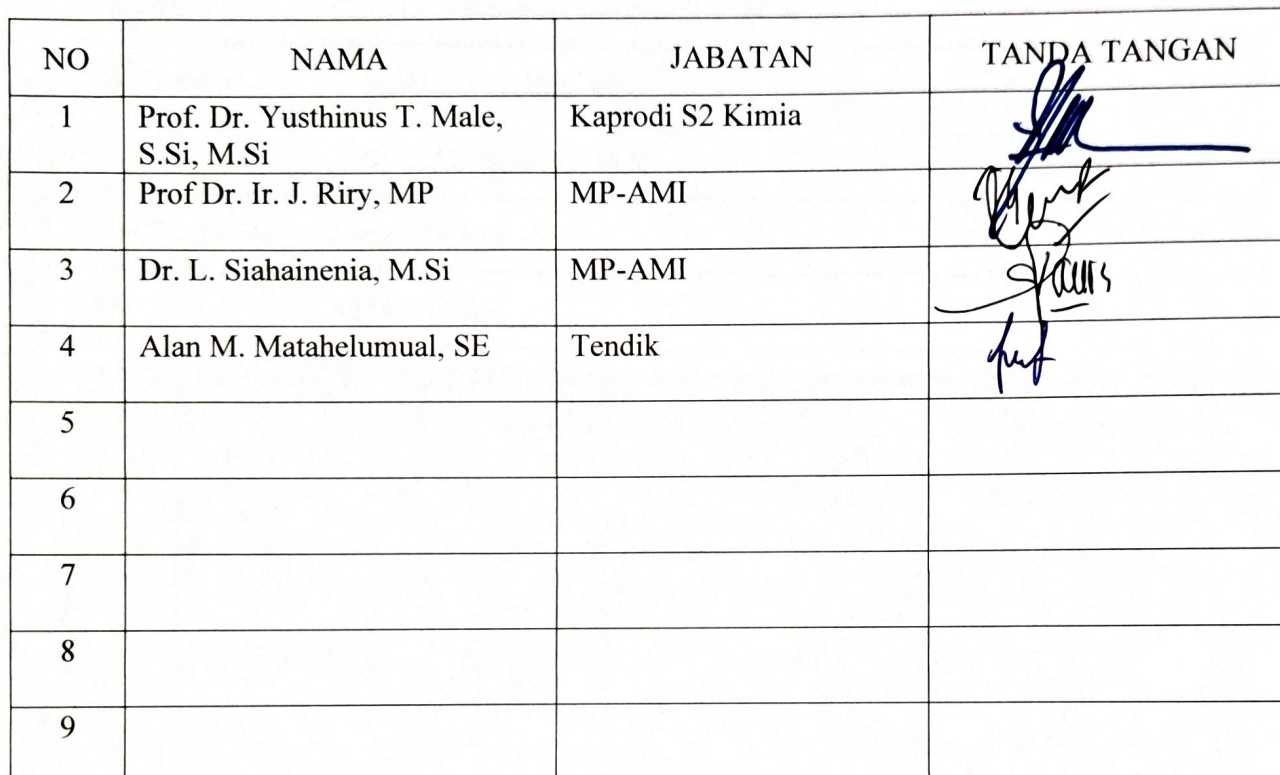 NO NAMA JABATAN TANDA TANGAN
1 Prof. Dr. Yusthinus T. Male, Kaprodi S2 Kimia
S.Si, M.Si
2 Prof Dr. Ir. J. Riry, MP MP-AMI
3 Dr. L. Siahainenia, M.Si MP-AMI
4 Alan M. Matahelumual, SE Tendik
5
6
7
8
9